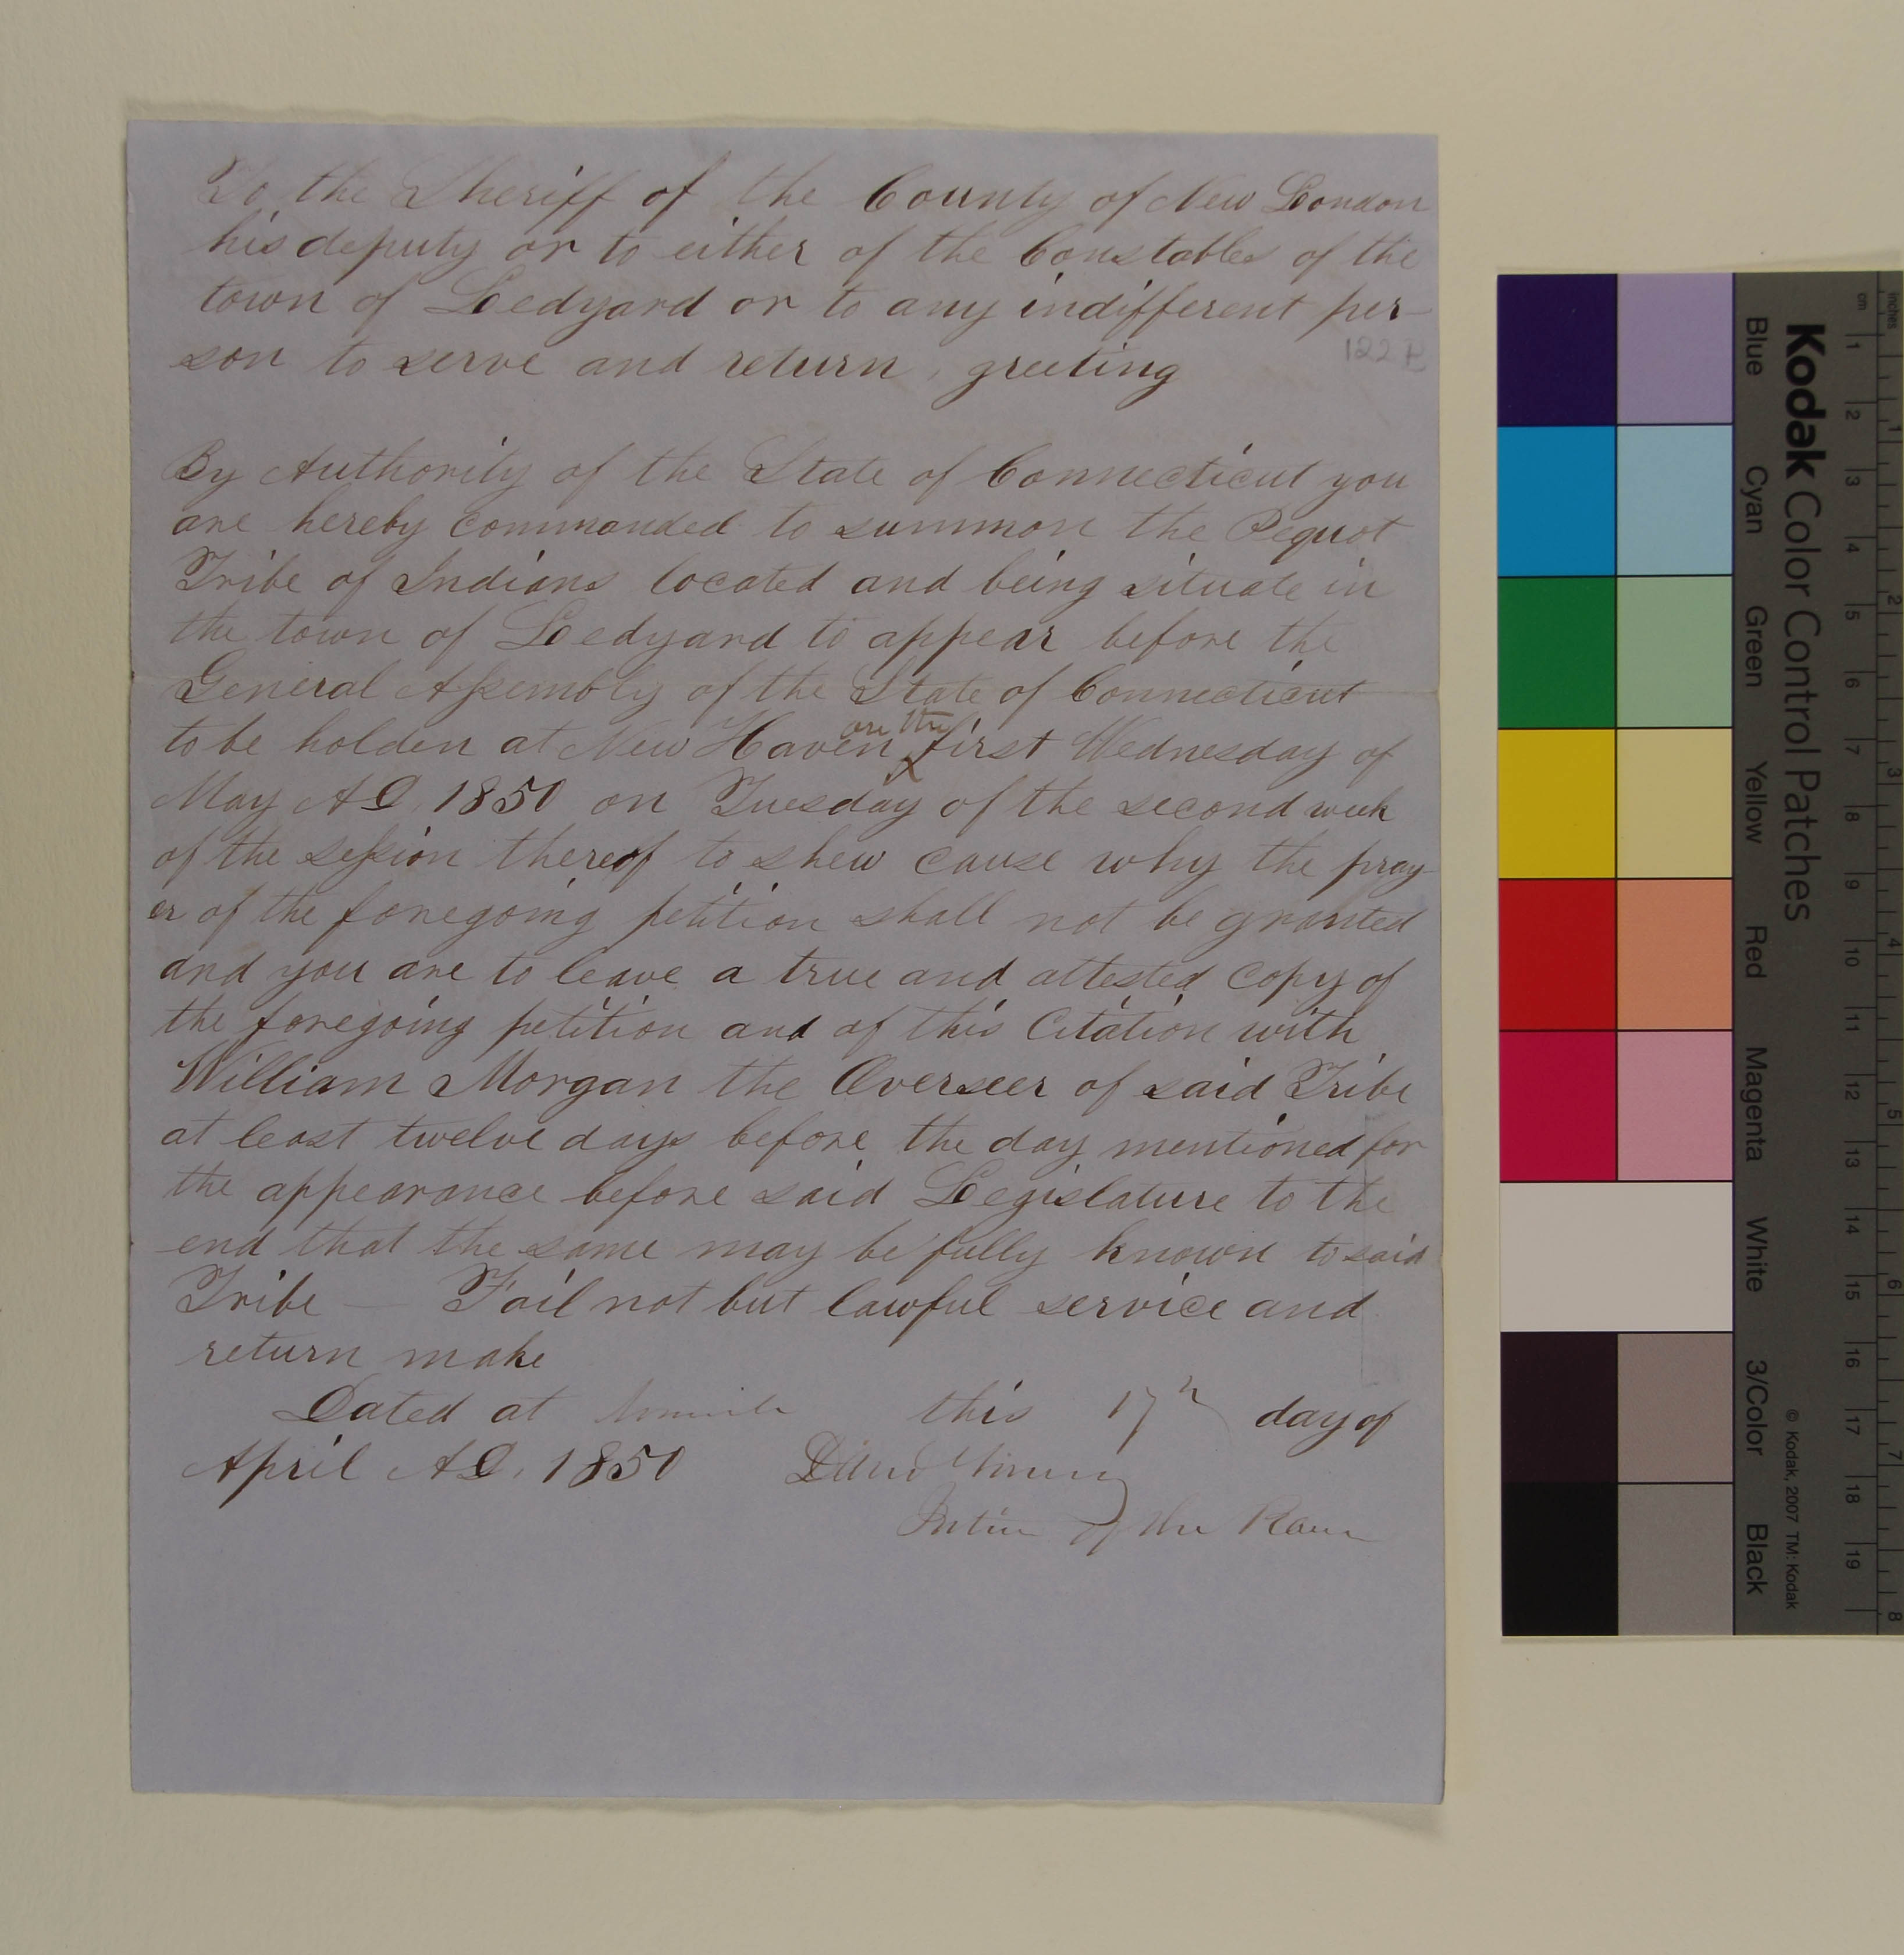 To the Sheriff of the County of New London
his deputy or to either of the Constables of the
town of Ledyard or to any indifferent per-
son to serve and return, greeting
122
By Authority of the State of Connecticut you
are hereby commanded to summon the Pequot
Tribe of Indians located and being situate in
the town of Ledyard to appear before the
General Assembly of the State of Connecticut
on the
to be holden at New Haven first Wednesday of
May AD. 1850 on Tuesday of the second week
of the session thereof to shew cause why the pray-
er of the foregoing petition shall not be granted
and you are to leave a true and attested copy of
the foregoing petition and of this Citation with
William Morgan the Overseer of said Tribe
at least twelve days before the day mentioned for
the appearance before said Legislature to the
end that the same may be fully known to said
Tribe — Fail not but lawful service and
return make
Dated at this 17th day of
April AD. 1850
Justice of the Peace
Kodak Color Control Patches
Blue Cyan Green Yellow Red Magenta White 3/Color Black
© Kodak, 2007 TM: Kodak
cm 1 2 3 4 5 6 7 8 9 10 11 12 13 14 15 16 17 18 19
inches 1 2 3 4 5 6 7 8